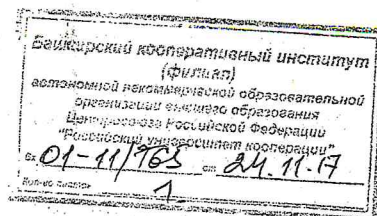 Башкирский кооперативный институт
(филиал)
автономной некоммерческой образовательной
организации высшего образования
Центросоюза Российской Федерации
"Российский университет кооперации"
Вх 01-11/763 от 24.11.17
Кол-во листов 1